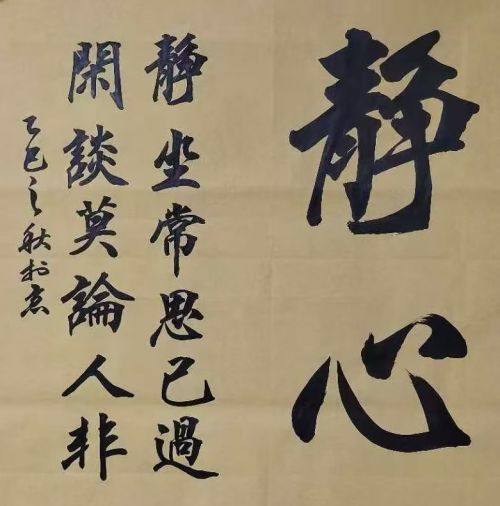 静心
静坐常思己過
閑談莫論人非
乙巳之秋於京